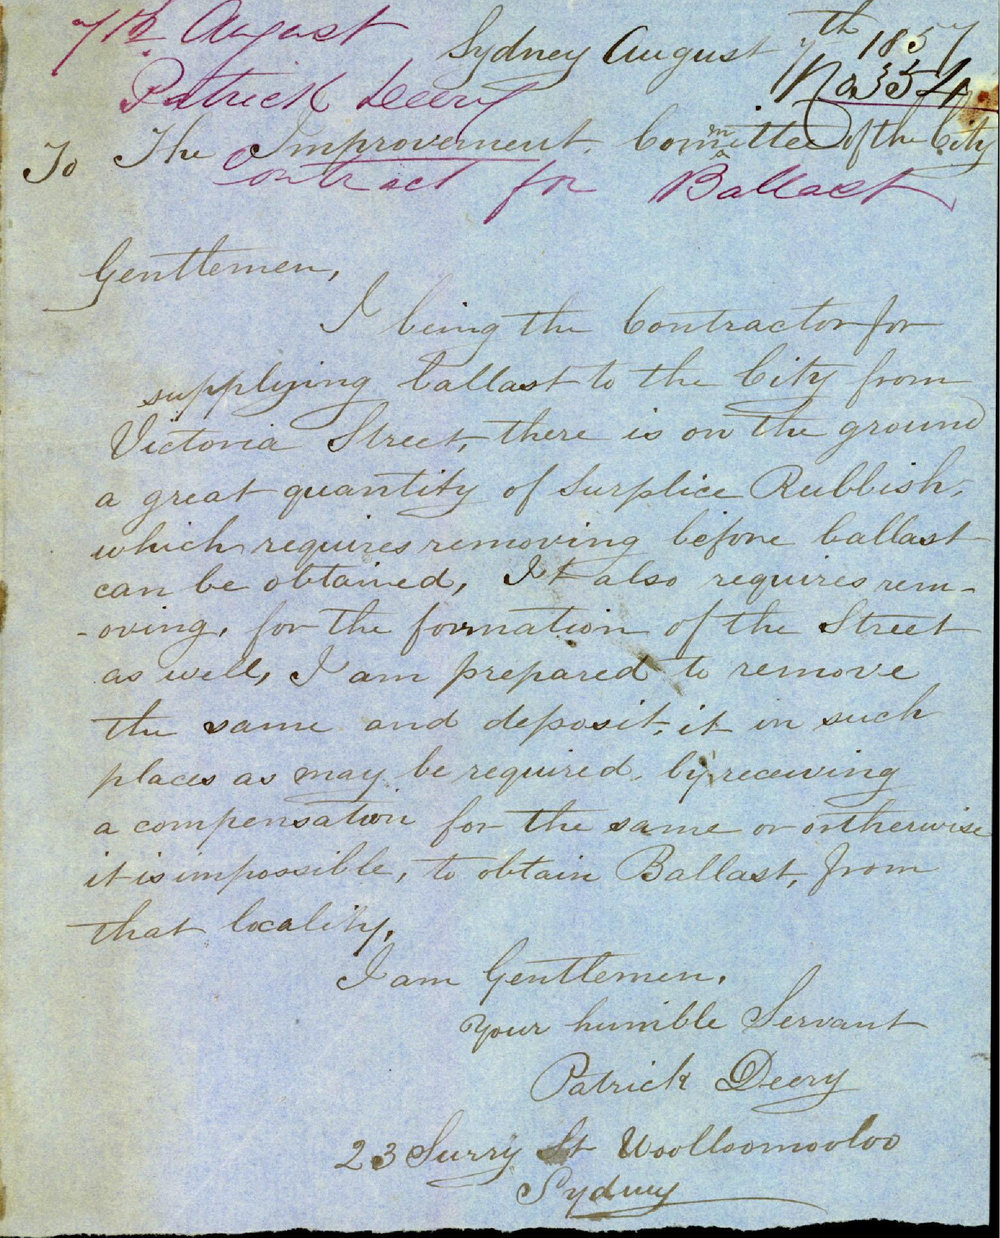 7th August
Sydney August 7th 1857
Patrick Deery
No 354
To The Improvement Committee of the City
Contract for Ballast
Gentlemen,
I being the Contractor for
supplying ballast to the City from
Victoria Street, there is on the ground
a great quantity of Surplice Rubbish,
which requires removing before ballast
can be obtained, It also requires rem-
-oving, for the formation of the Street
as well, I am prepared to remove
the same and deposit, it in such
places as may be required, by receiving
a compensation for the same or ortherwise
it is impossible, to obtain Ballast, from
that locality,
I am Gentlemen,
Your humble Servant
Patrick Deery
23 Surry St Woolloomooloo
Sydney